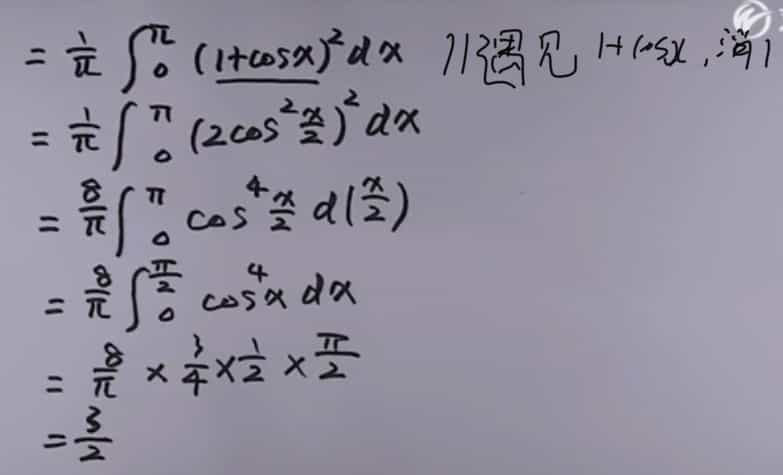 = 1/π ∫₀^π (1+cosx)² dx //遇见 1+cosx, 消1
= 1/π ∫₀^π (2cos² x/2)² dx
= 8/π ∫₀^π cos⁴ x/2 d(x/2)
= 8/π ∫₀^{π/2} cos⁴x dx
= 8/π × 3/4 × 1/2 × π/2
= 3/2